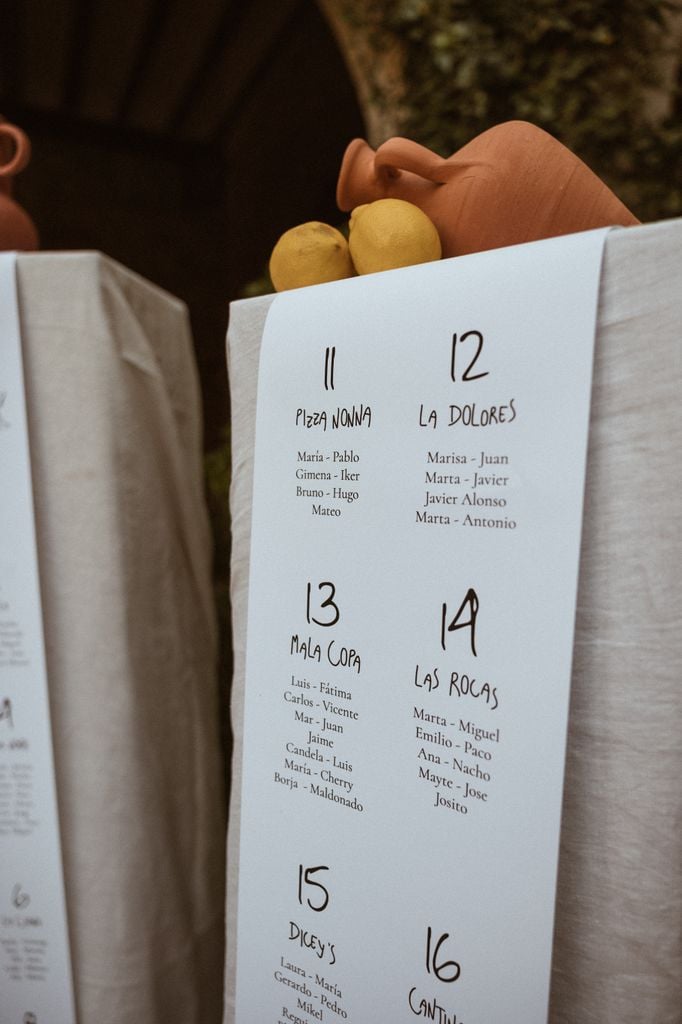 11
PIZZA NONNA
María - Pablo
Gimena - Iker
Bruno - Hugo
Mateo
12
LA DOLORES
Marisa - Juan
Marta - Javier
Javier Alonso
Marta - Antonio
13
MALA COPA
Luis - Fátima
Carlos - Vicente
Mar - Juan
Jaime
Candela - Luis
María - Cherry
Borja - Maldonado
14
LAS ROCAS
Marta - Miguel
Emilio - Paco
Ana - Nacho
Mayte - Jose
Josito
15
DICEY'S
Laura - María
Gerardo - Pedro
Mikel
16
6